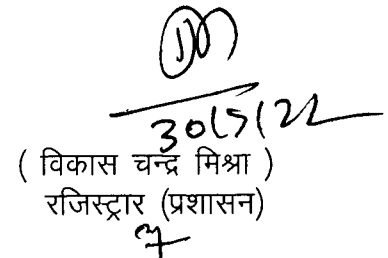 30/5/22
( विकास चन्द्र मिश्रा )
रजिस्ट्रार (प्रशासन)